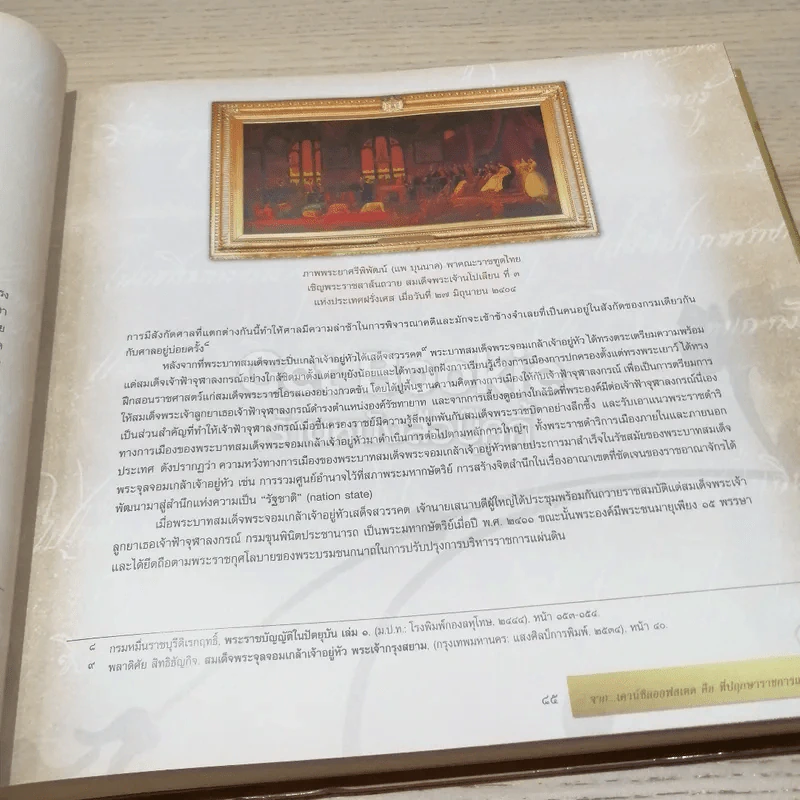 ภาพพระยาศรีพิพัฒน์ (แพ บุนนาค) พาคณะราชทูตไทย
เชิญพระราชสาส์นถวาย สมเด็จพระเจ้านโปเลียน ที่ ๓
แห่งประเทศฝรั่งเศส เมื่อวันที่ ๒๗ มิถุนายน ๒๔๐๔
การมีสังกัดศาลที่แตกต่างกันนี้ทำให้ศาลมีความล่าช้าในการพิจารณาคดีและมักจะเข้าข้างจำเลยที่เป็นคนอยู่ในสังกัดของกรมเดียวกัน
กับศาลอยู่บ่อยครั้ง๘
หลังจากที่พระบาทสมเด็จพระปิ่นเกล้าเจ้าอยู่หัวได้เสด็จสวรรคต๙ พระบาทสมเด็จพระจอมเกล้าเจ้าอยู่หัว ได้ทรงตระเตรียมความพร้อม
แด่สมเด็จเจ้าฟ้าจุฬาลงกรณ์อย่างใกล้ชิดมาตั้งแต่อายุยังน้อยและได้ทรงปลูกฝังการเรียนรู้เรื่องการเมืองการปกครองตั้งแต่ทรงพระเยาว์ ได้ทรง
ฝึกสอนราชศาสตร์แก่สมเด็จพระราชโอรสเองอย่างกวดขัน โดยได้ปูพื้นฐานความคิดทางการเมืองให้กับเจ้าฟ้าจุฬาลงกรณ์ เพื่อเป็นการเตรียมการ
ให้สมเด็จพระเจ้าลูกยาเธอเจ้าฟ้าจุฬาลงกรณ์ดำรงตำแหน่งองค์รัชทายาท และจากการเลี้ยงดูอย่างใกล้ชิดที่พระองค์มีต่อเจ้าฟ้าจุฬาลงกรณ์นี่เอง
เป็นส่วนสำคัญที่ทำให้เจ้าฟ้าจุฬาลงกรณ์เมื่อขึ้นครองราชย์มีความรู้สึกผูกพันกับสมเด็จพระราชบิดาอย่างลึกซึ้ง และรับเอาแนวพระราชดำริ
ทางการเมืองของพระบาทสมเด็จพระจอมเกล้าเจ้าอยู่หัวมาดำเนินการต่อไปตามหลักการใหญ่ๆ ทั้งพระราชดำริการเมืองภายในและภายนอก
ประเทศ ดังปรากฏว่า ความหวังทางการเมืองของพระบาทสมเด็จพระจอมเกล้าเจ้าอยู่หัวหลายประการมาสำเร็จในรัชสมัยของพระบาทสมเด็จ
พระจุลจอมเกล้าเจ้าอยู่หัว เช่น การรวมศูนย์อำนาจไว้ที่สภาพระมหากษัตริย์ การสร้างจิตสำนึกในเรื่องอาณาเขตที่ชัดเจนของราชอาณาจักรได้
พัฒนามาสู่สำนึกแห่งความเป็น “รัฐชาติ” (nation state)
เมื่อพระบาทสมเด็จพระจอมเกล้าเจ้าอยู่หัวเสด็จสวรรคต เจ้านายเสนาบดีผู้ใหญ่ได้ประชุมพร้อมกันถวายราชสมบัติแด่สมเด็จพระเจ้า
ลูกยาเธอเจ้าฟ้าจุฬาลงกรณ์ กรมขุนพินิตประชานารถ เป็นพระมหากษัตริย์เมื่อปี พ.ศ. ๒๔๑๑ ขณะนั้นพระองค์มีพระชนมายุเพียง ๑๕ พรรษา
และได้ยึดถือตามพระราชกุศโลบายของพระบรมชนกนาถในการปรับปรุงการบริหารราชการแผ่นดิน
๘ กรมหมื่นราชบุรีดิเรกฤทธิ์, พระราชบัญญัติในปัตยุบัน เล่ม ๑. (ม.ป.ท.: โรงพิมพ์กองลหุโทษ. ๒๔๔๔). หน้า ๑๕๓-๑๕๔.
๙ พลาดิศัย สิทธิธัญกิจ. สมเด็จพระจุลจอมเกล้าเจ้าอยู่หัว พระเจ้ากรุงสยาม. (กรุงเทพมหานคร: แสงศิลป์การพิมพ์. ๒๕๓๔). หน้า ๔๐.
๔๕
จาก...เคาน์ซิลออฟสเตต คือ ที่ปฤกษาราชการ